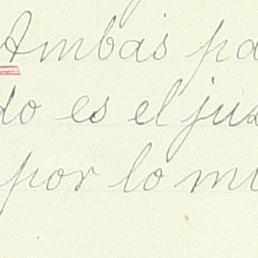 Ambas pa
do es el juz
por lo mi